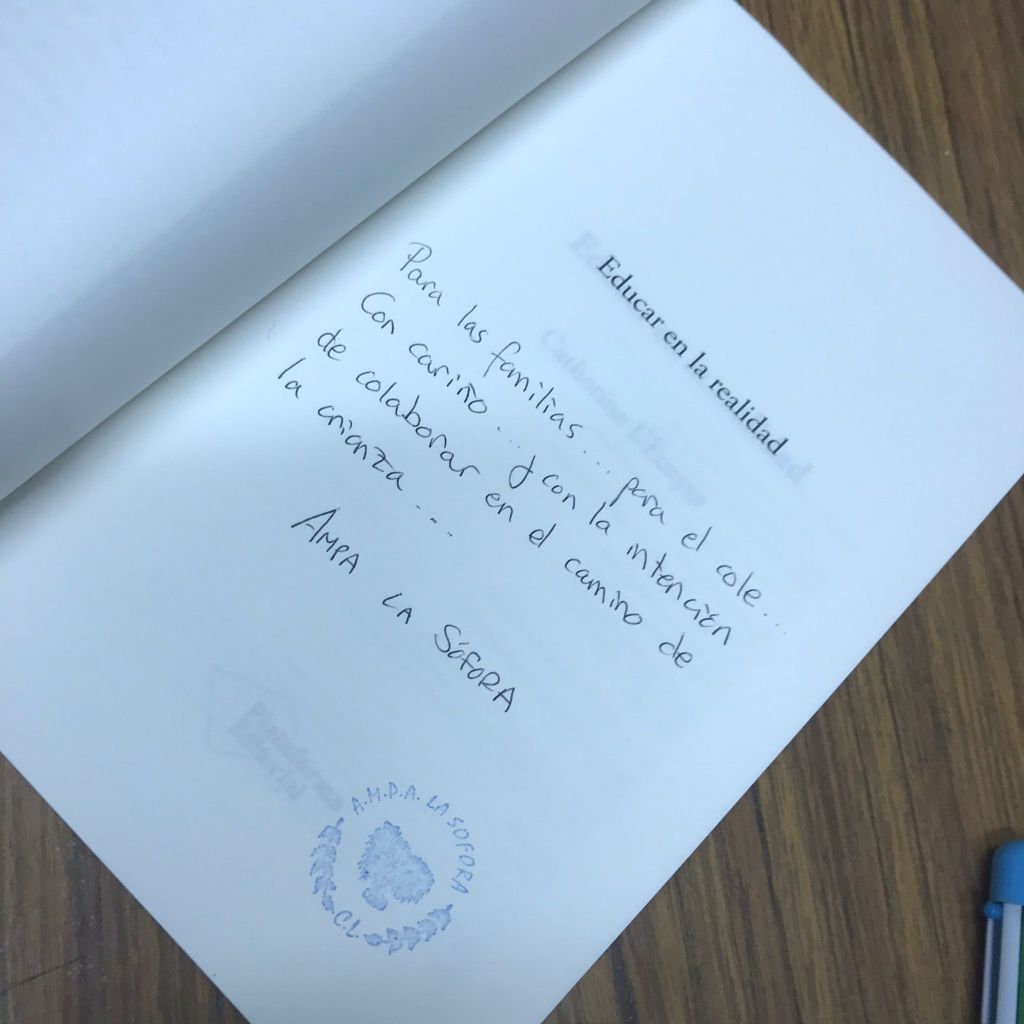 Educar en la realidad
Para las familias... para el cole...
Con cariño... y con la intención
de colaborar en el camino de
la crianza...
AMPA LA SÓFORA
A.M.P.A. LA SOFORA
C.L.